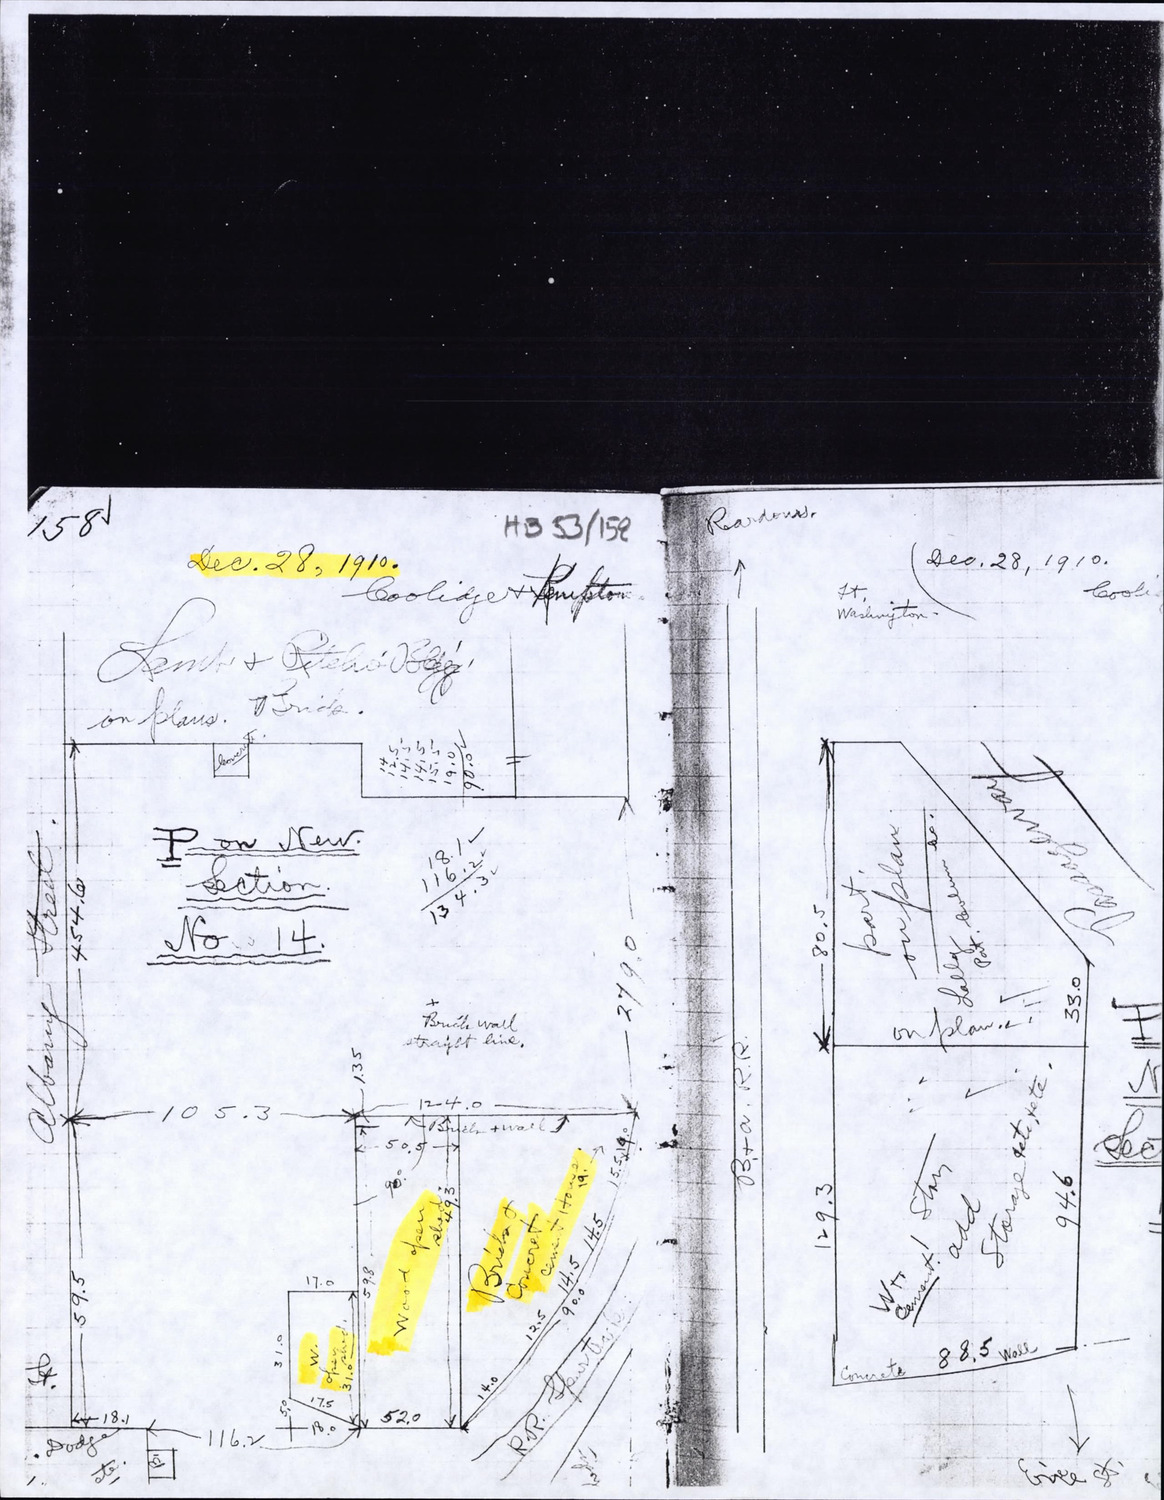 158
HB 53/159
Dec. 28, 1910.
Coolidge +
on plans. Brick.
Concrete
14
12.5
14.5
14.5
15.5
19.0
90.0
P on New
Section.
No. 14.
18.1
116.2
134.3
Albany Street.
454.6
279.0
+
Brick wall
straight line.
1.35
105.3
124.0
Brick + wall
50.5
90°
49.3
59.8
Wood open
shed.
Brick +
Concrete
cement House
19.
15.5
14.5
14.5
90.0
12.5
14.0
17.0
31.0
W.
open
shed.
31.0
5.0
17.5
18.0
52.0
59.5
18.1
116.2
Dodge
R.R. Spur Track
Reardons.
Dec. 28, 1910.
St.
Washington
Cooli
B. + A. R.R.
80.5
part
on plan
Lally column
Passageway
on plan.
33.0
129.3
94.6
Story
add
Storage
Concrete
88.5
Wall
Sec
Erie St.